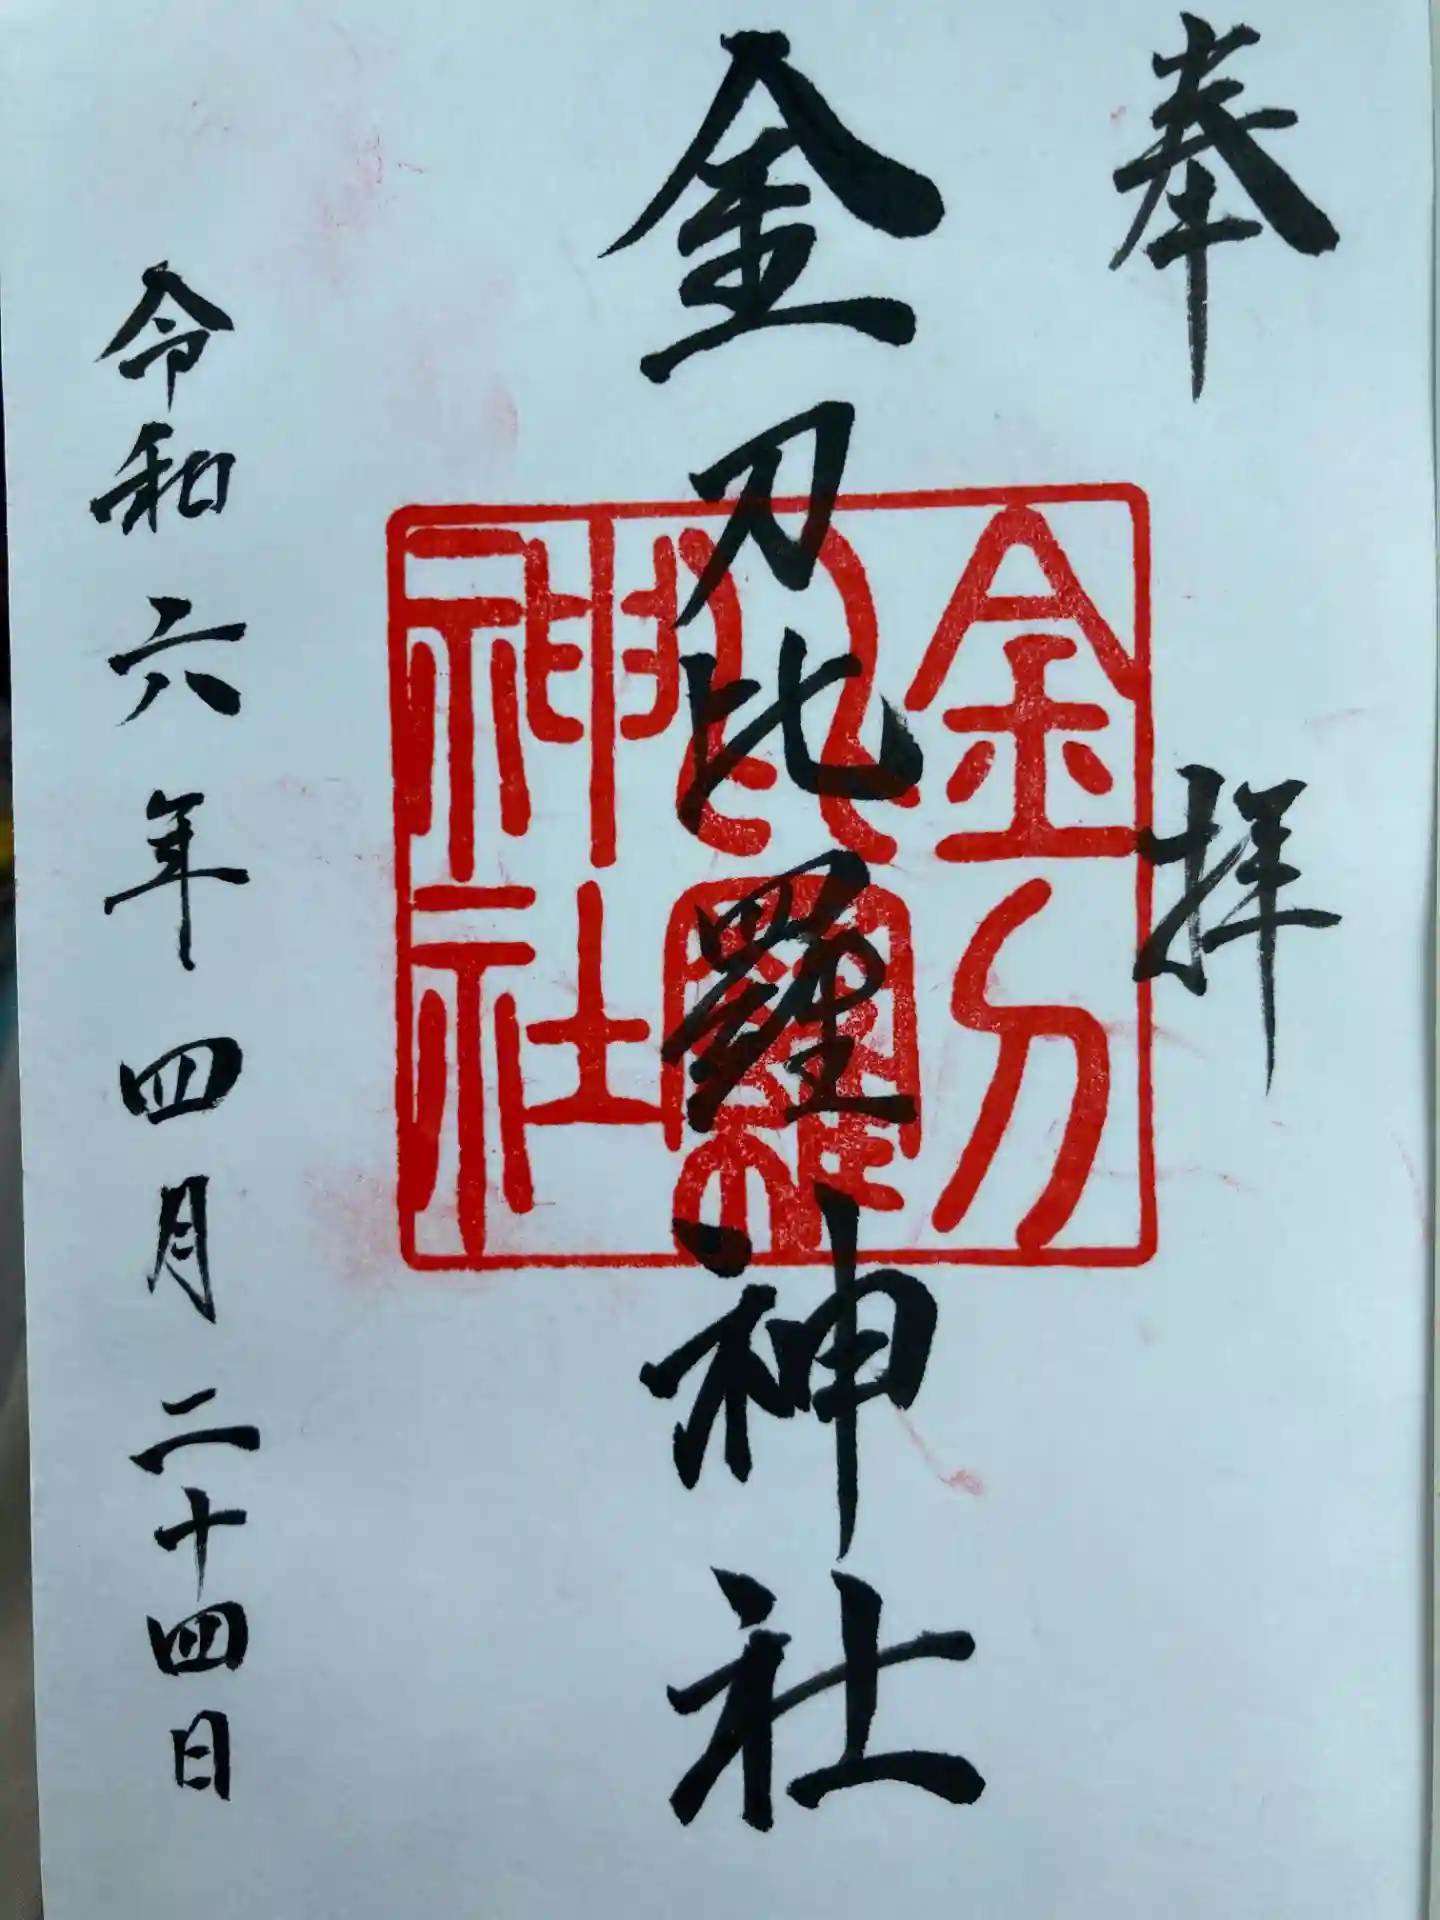 奉拝
金刀比羅神社
金刀
比羅
神社
令和六年四月二十四日